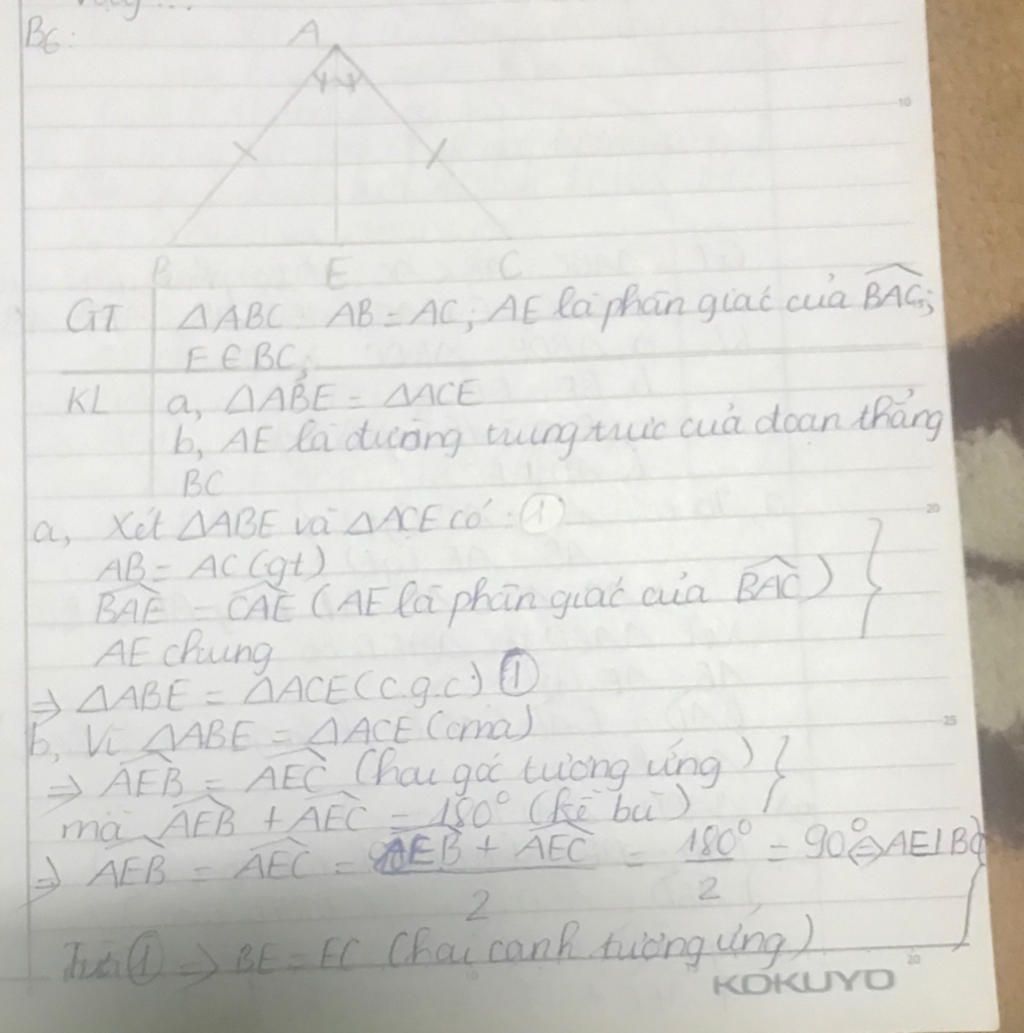 B6:
A
B E C
GT ΔABC AB = AC; AE là phân giác của BAC;
E ∈ BC,
KL a, ΔABE = ΔACE
b, AE là đường trung trực của đoạn thẳng
BC
a, Xét ΔABE và ΔACE có: ①
AB = AC (gt)
BAE = CAE (AE là phân giác của BAC)
AE chung
⇒ ΔABE = ΔACE (c.g.c) ①
b, Vì ΔABE = ΔACE (cma)
⇒ AEB = AEC (hai góc tương ứng)
mà AEB + AEC = 180° (kề bù)
⇒ AEB = AEC = AEB + AEC / 2 = 180° / 2 = 90° ⇒ AE ⊥ BC
Từ ① ⇒ BE = EC (hai cạnh tương ứng)
10
20
25
10
15
20
KOKUYO